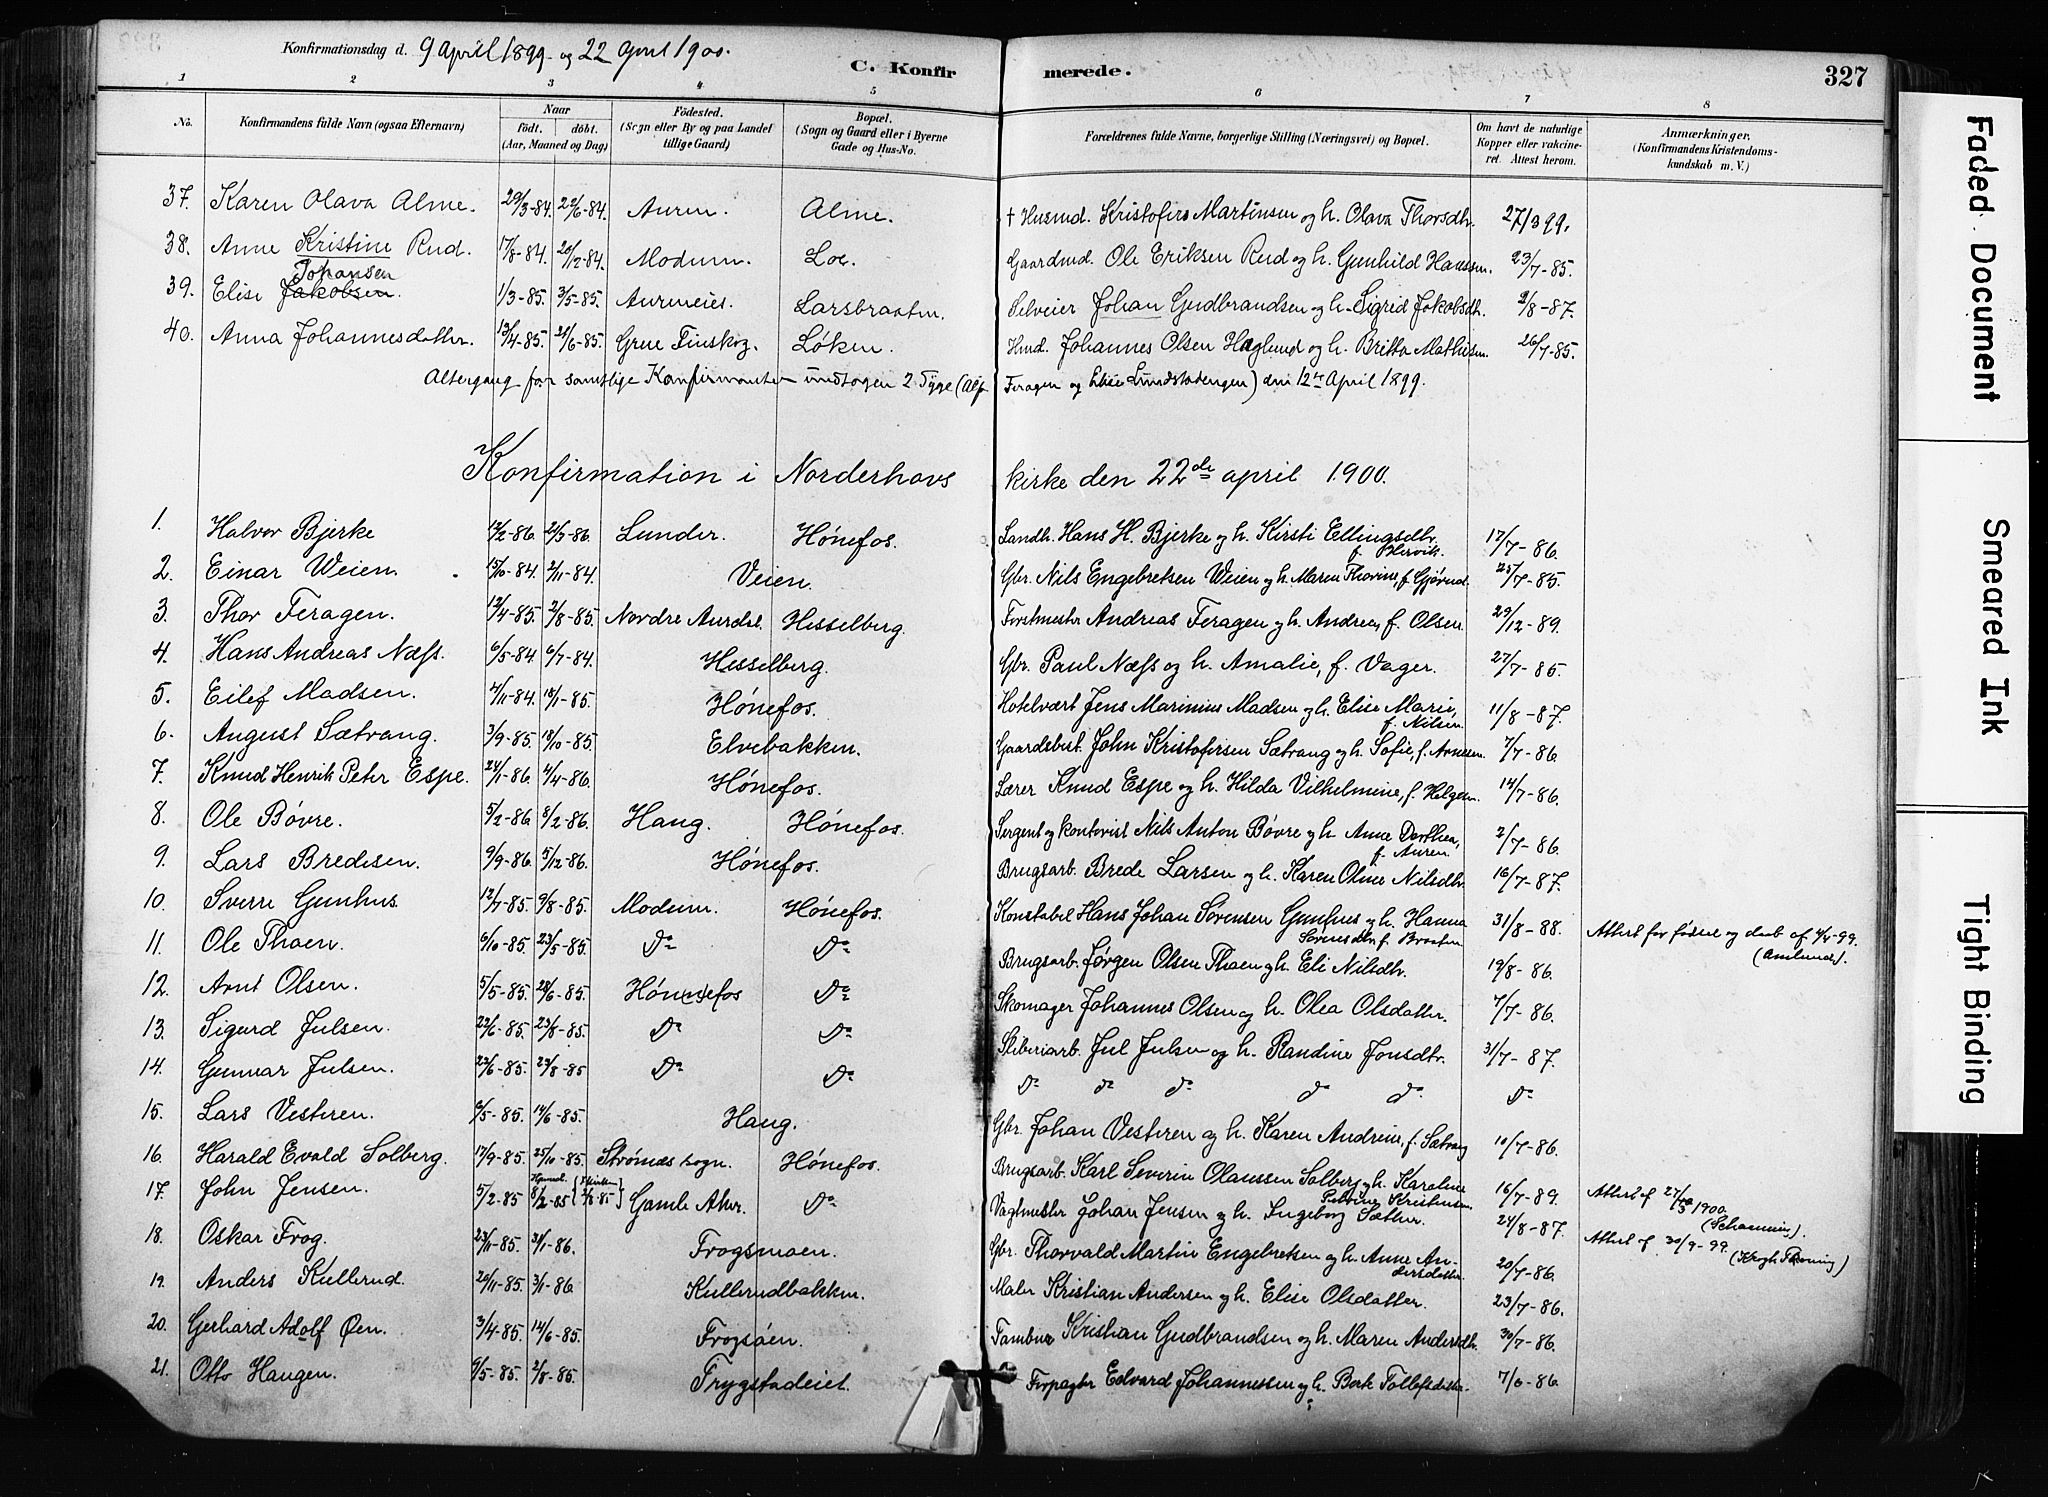 Konfirmationsdag d. 9 April 1899 og 22 April 1900.
C. Konfirmerede.
327
1 2 3 4 5 6 7 8
No.
Konfirmandens fulde Navn (ogsaa Efternavn)
Naar
födt. döbt.
(Aar, Maaned og Dag)
Födested.
(Sogn eller By og paa Landet
tillige Gaard)
Bopæl.
(Sogn og Gaard eller i Byerne
Gade og Hus-No.
Forældrenes fulde Navne, borgerlige Stilling (Næringsvei) og Bopæl.
Om havt de naturlige
Kopper eller vakcine-
ret. Attest herom.
Anmærkninger.
(Konfirmandens Kristendoms-
kundskab m. V.)
37. Karen Olava Alme. 29/3-84. 22/6-84. Auren. Alme. † Husmd. Kristofer Martinsen og h. Olava Thorsdtr. 27/3 99.
38. Anne Kristine Rud. 17/8-84. 20/12-84. Modum. Loe. Gaardmd. Ole Eriksen Rud og h. Gunhild Hanssen. 23/7-85.
Johansen
39. Elise Jakobsen. 1/3-85. 3/5-85. Aureneiet. Larsbraaten. Selveier Johan Gudbrandsen og h. Sigrid Jakobsdt. 9/8-87.
40. Anna Johannesdatter. 13/4-85. 21/6-85. Grue Finskog. Løken. Hmd. Johannes Olsen Haglund og h. Britta Mathisen. 26/7-85.
Altergang for samtlige Konfirmanter undtagen 2 Syge (Alf Feragen og Elise Lundstadengen) den 12te April 1899.
Konfirmation i Norderhovs kirke den 22de april 1900.
1. Halvor Bjerke 12/2-86. 24/3-86. Lunder. Hønefos. Landh. Hans H. Bjerke og h. Kirsti Ellingsdtr. 17/7-86.
2. Einar Weien. 15/10-84. 2/11-84. Veien. Gbr. Nils Engebretsen Weien og h. Maren Thorine, f. Gjørud. 25/7-85.
3. Thor Feragen. 12/4-85. 2/8-85. Nordre Aurdal. Hesselberg. Forstmester Andreas Feragen og h. Andrea, f. Olsen. 29/12-89.
4. Hans Andreas Næss. 6/5-84. 6/7-84. Hesselberg. Gbr. Paul Næss og h. Amalie, f. Vager. 27/7-85.
5. Eilef Madsen. 4/11-84. 18/1-85. Hønefos. Hotelvært Jens Marinius Madsen og h. Elise Marie, 11/8-87.
f. Nilsen.
6. August Sætrang. 3/9-85. 18/10-85. Elvebakken. Gaardsbest. John Kristofersen Sætrang og h. Sofie, f. Arnesen. 7/7-86.
7. Knud Henrik Peter Espe. 24/1-86. 4/4-86. Hønefos. Lærer Knud Espe og h. Hilda Vilhelmine, f. Helgesen. 14/7-86.
8. Ole Bøvre. 5/2-86 8/2-86. Haug. Hønefos. Sergent og kontorist Nils Anton Bøvre og h. Anne Dorthea, 2/7-86.
f. Auren.
9. Lars Bredesen. 9/9-86. 5/12-86. Hønefos. Brugsarb. Brede Larsen og h. Karen Oline Nilsdtr. 16/7-87.
10. Sverre Gunhus 12/7-85. 9/8-85. Modum. Hønefos. Konstabel Hans Johan Sørensen Gunhus og h. Hanna 31/8-88. Attest for fødsel og daab af 4/4-99.
Sørensdtr. f. Braaten. (Amlunds).
11. Ole Thoen. 6/10-85. 23/5-85. Do Do Brugsarb. Jørgen Olsen Thoen og h. Eli Nilsdtr. 19/8-86.
12. Arnt Olsen. 5/5-85. 28/6-85. Hønefos Do Skomager Johannes Olsen og h. Olea Olsdatter. 7/7-86.
13. Sigurd Julsen. 22/6-85. 23/8-85. Do Do Sliberiarb. Jul Julsen og h. Randine Jonsdtr. 31/7-87.
14. Gunvar Julsen. 23/6-85. 23/8-85 Do Do Do do do do do. Do
15. Lars Vesteren. 6/5-85. 14/6-85. Haug. Gbr. Johan Vesteren og h. Karen Andrine, f. Sætrang 10/7-86.
16. Harald Evald Solberg. 17/9-85. 25/10-85. Strømsø sogn. Hønefos. Brugsarb. Karl Severin Olaussen Solberg og h. Karoline 16/7-89. Attest af 27/3 1900.
17. John Jensen. 5/2-85 8/2-85 Gamle Aker. Do Vagtmester Johan Jensen og h. Ingeborg Sæther. 24/8-87. Attest af 30/9-99.
18. Oskar Frog. 23/11-85. 31/1-86. Frogsmoen. Gbr. Thorvald Martin Engebretsen og h. Anne An-
dersdatter. 20/7-86.
19. Anders Kullerud. 26/11-85. 3/1-86 Kullerudbakken. Maler Kristian Andersen og h. Elise Olsdatter. 23/7-86.
20. Gerhard Adolf Øen. 3/4-85. 14/6-85. Frogsøen. Tambur Kristian Gudbrandsen og h. Maren Andersdtr. 30/7-86.
21. Otto Haugen. 9/5-85. 2/8-85. Trygstadeiet. Forpagter Edvard Johannessen og h. Berte Tollefsdatter. 7/6-86.
Faded Document
Smeared Ink
Tight Binding